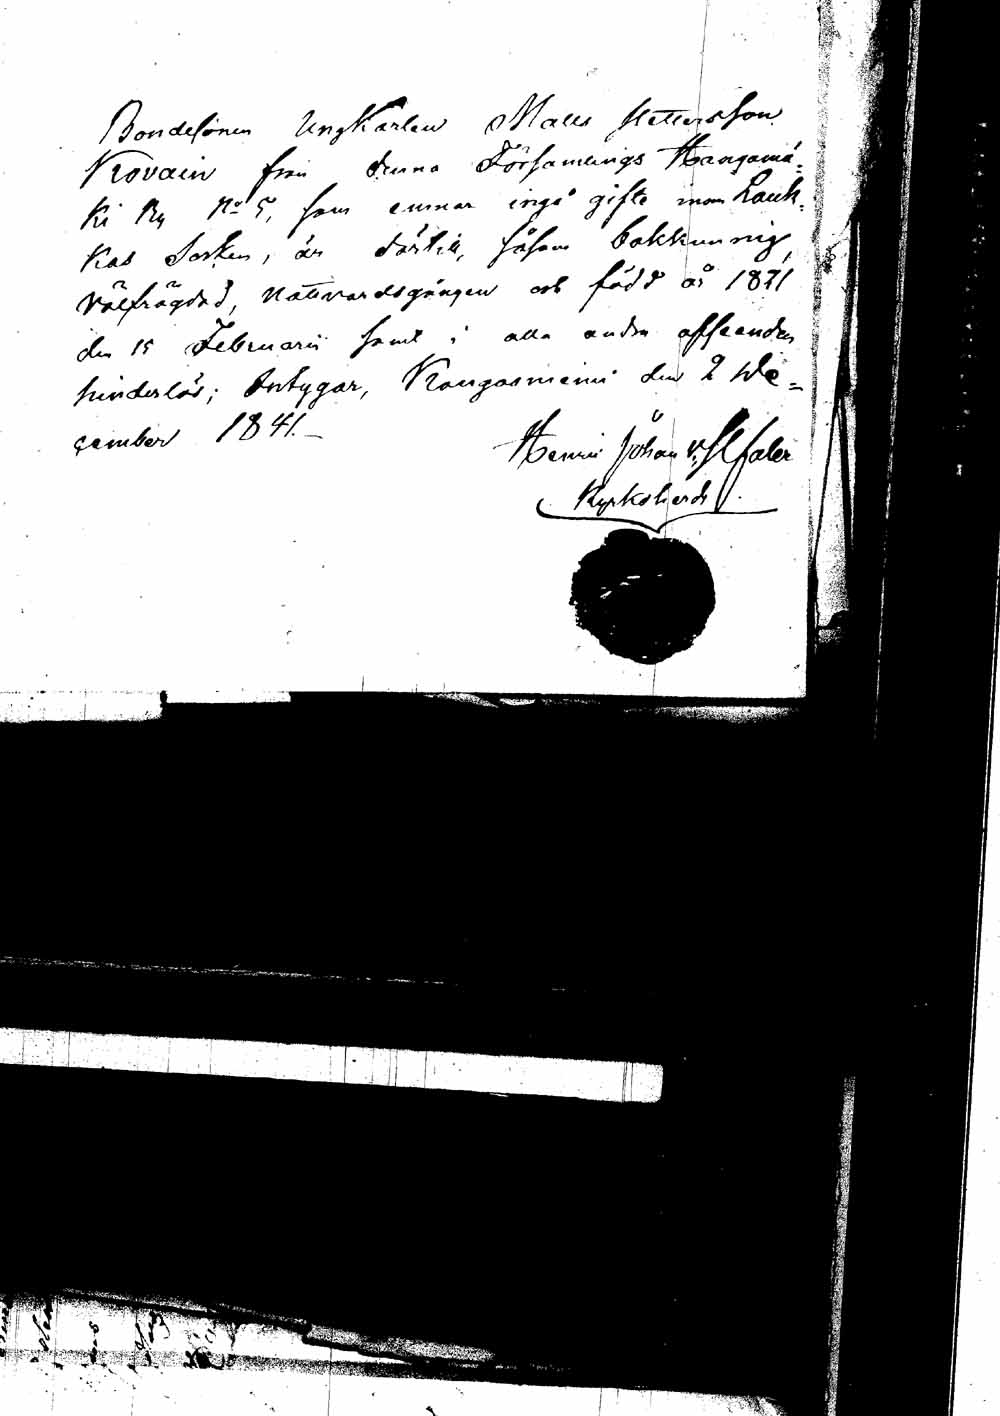 Bondesonen Ungkarlen Matts Pettersson
Kovain från denna Församlings Hangamä-
ki By No 5, som ernar ingå gifte inom Lauk-
kas Socken, är dertill, såsom bokkunnig,
välfrägdad, nattvardsgången och född år 1821
den 15 Februarii samt i alla andra afseenden
hinderlös; Intygar, Kangasniemi den 2 De=
cember 1841.
Henric Johan
Kyrkoherde.